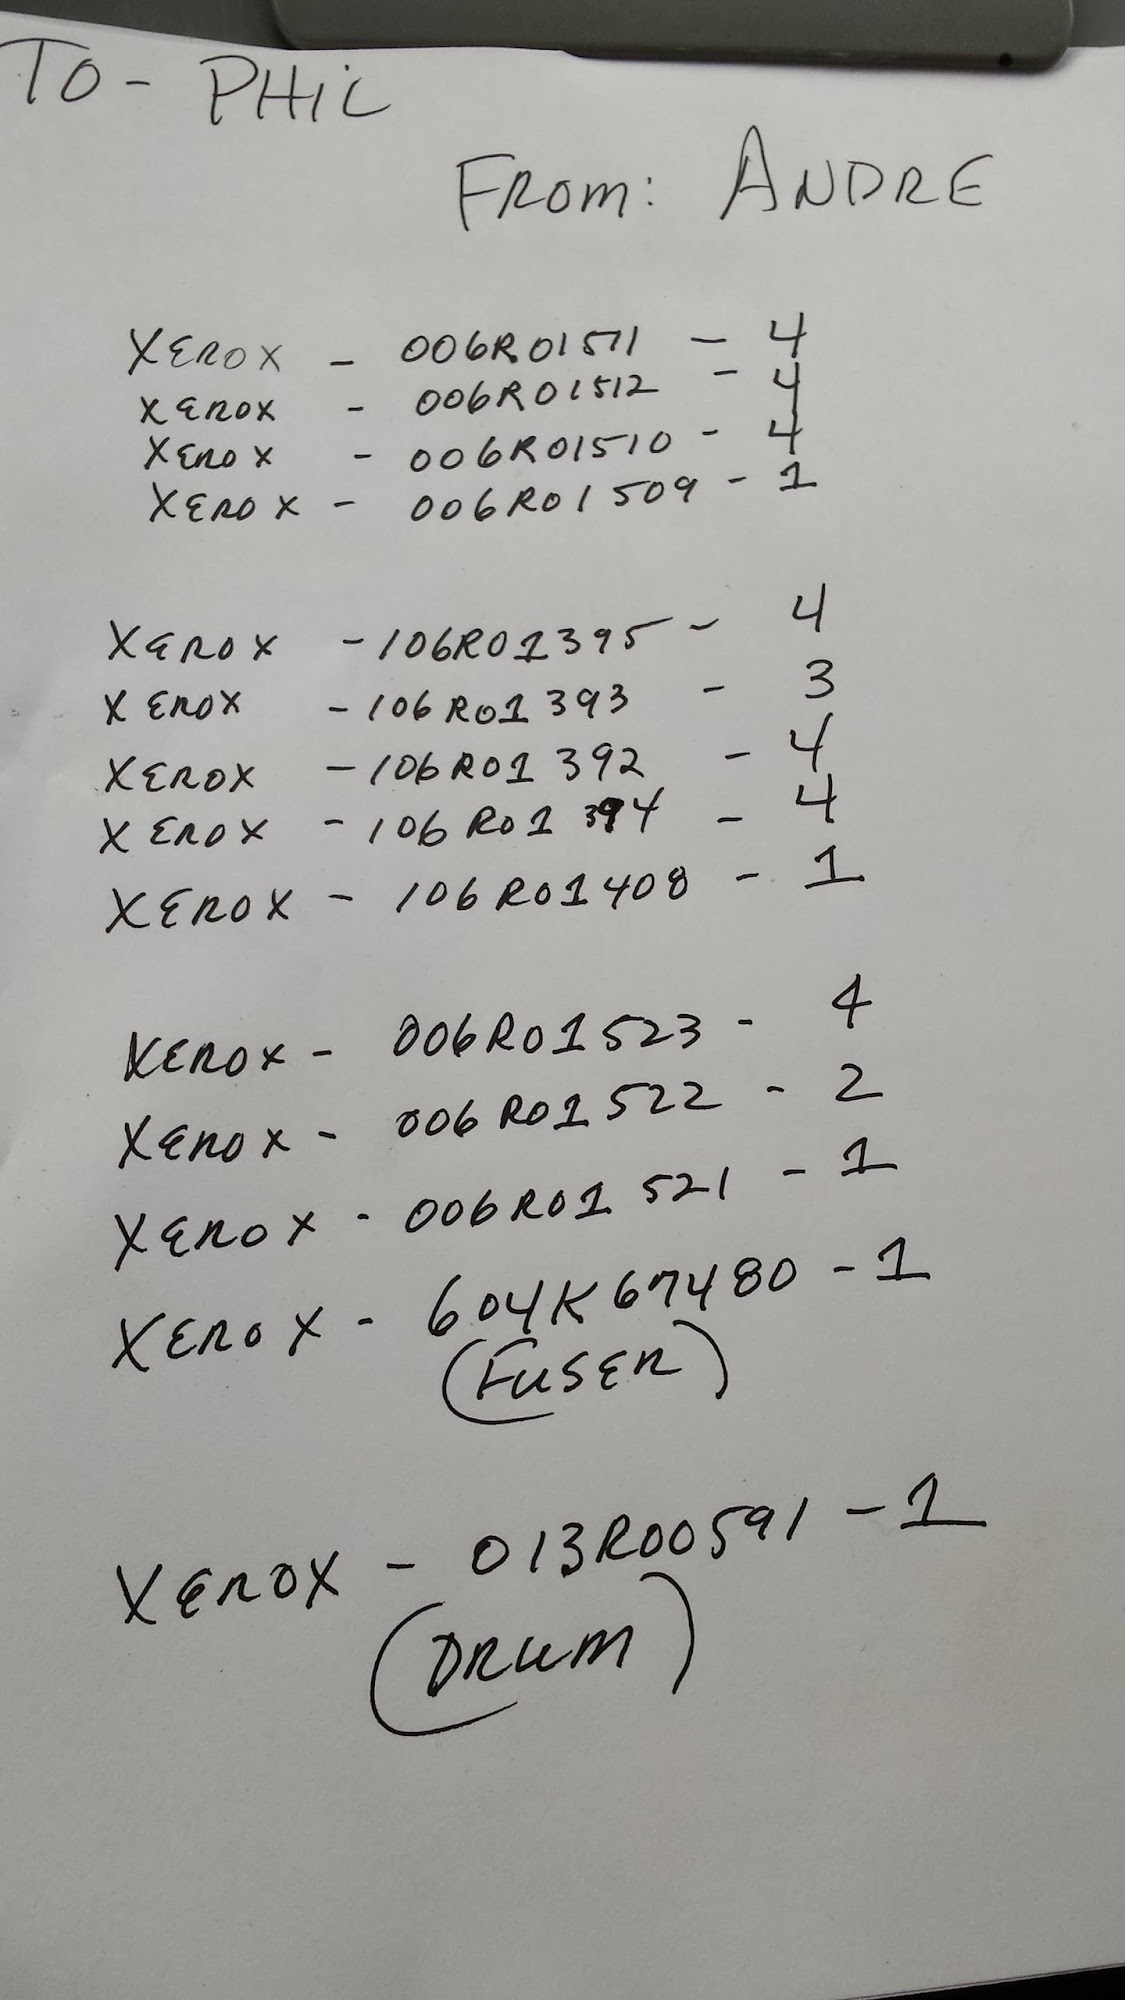 TO - PHIL
FROM: ANDRE
XEROX - 006R01511 - 4
XEROX - 006R01512 - 4
XEROX - 006R01510 - 4
XEROX - 006R01509 - 1
XEROX - 106R01395 - 4
XEROX - 106R01393 - 3
XEROX - 106R01392 - 4
XEROX - 106R01394 - 4
XEROX - 106R01408 - 1
XEROX - 006R01523 - 4
XEROX - 006R01522 - 2
XEROX - 006R01521 - 1
XEROX - 604K67480 - 1
(FUSER)
XEROX - 013R00591 - 1
(DRUM)